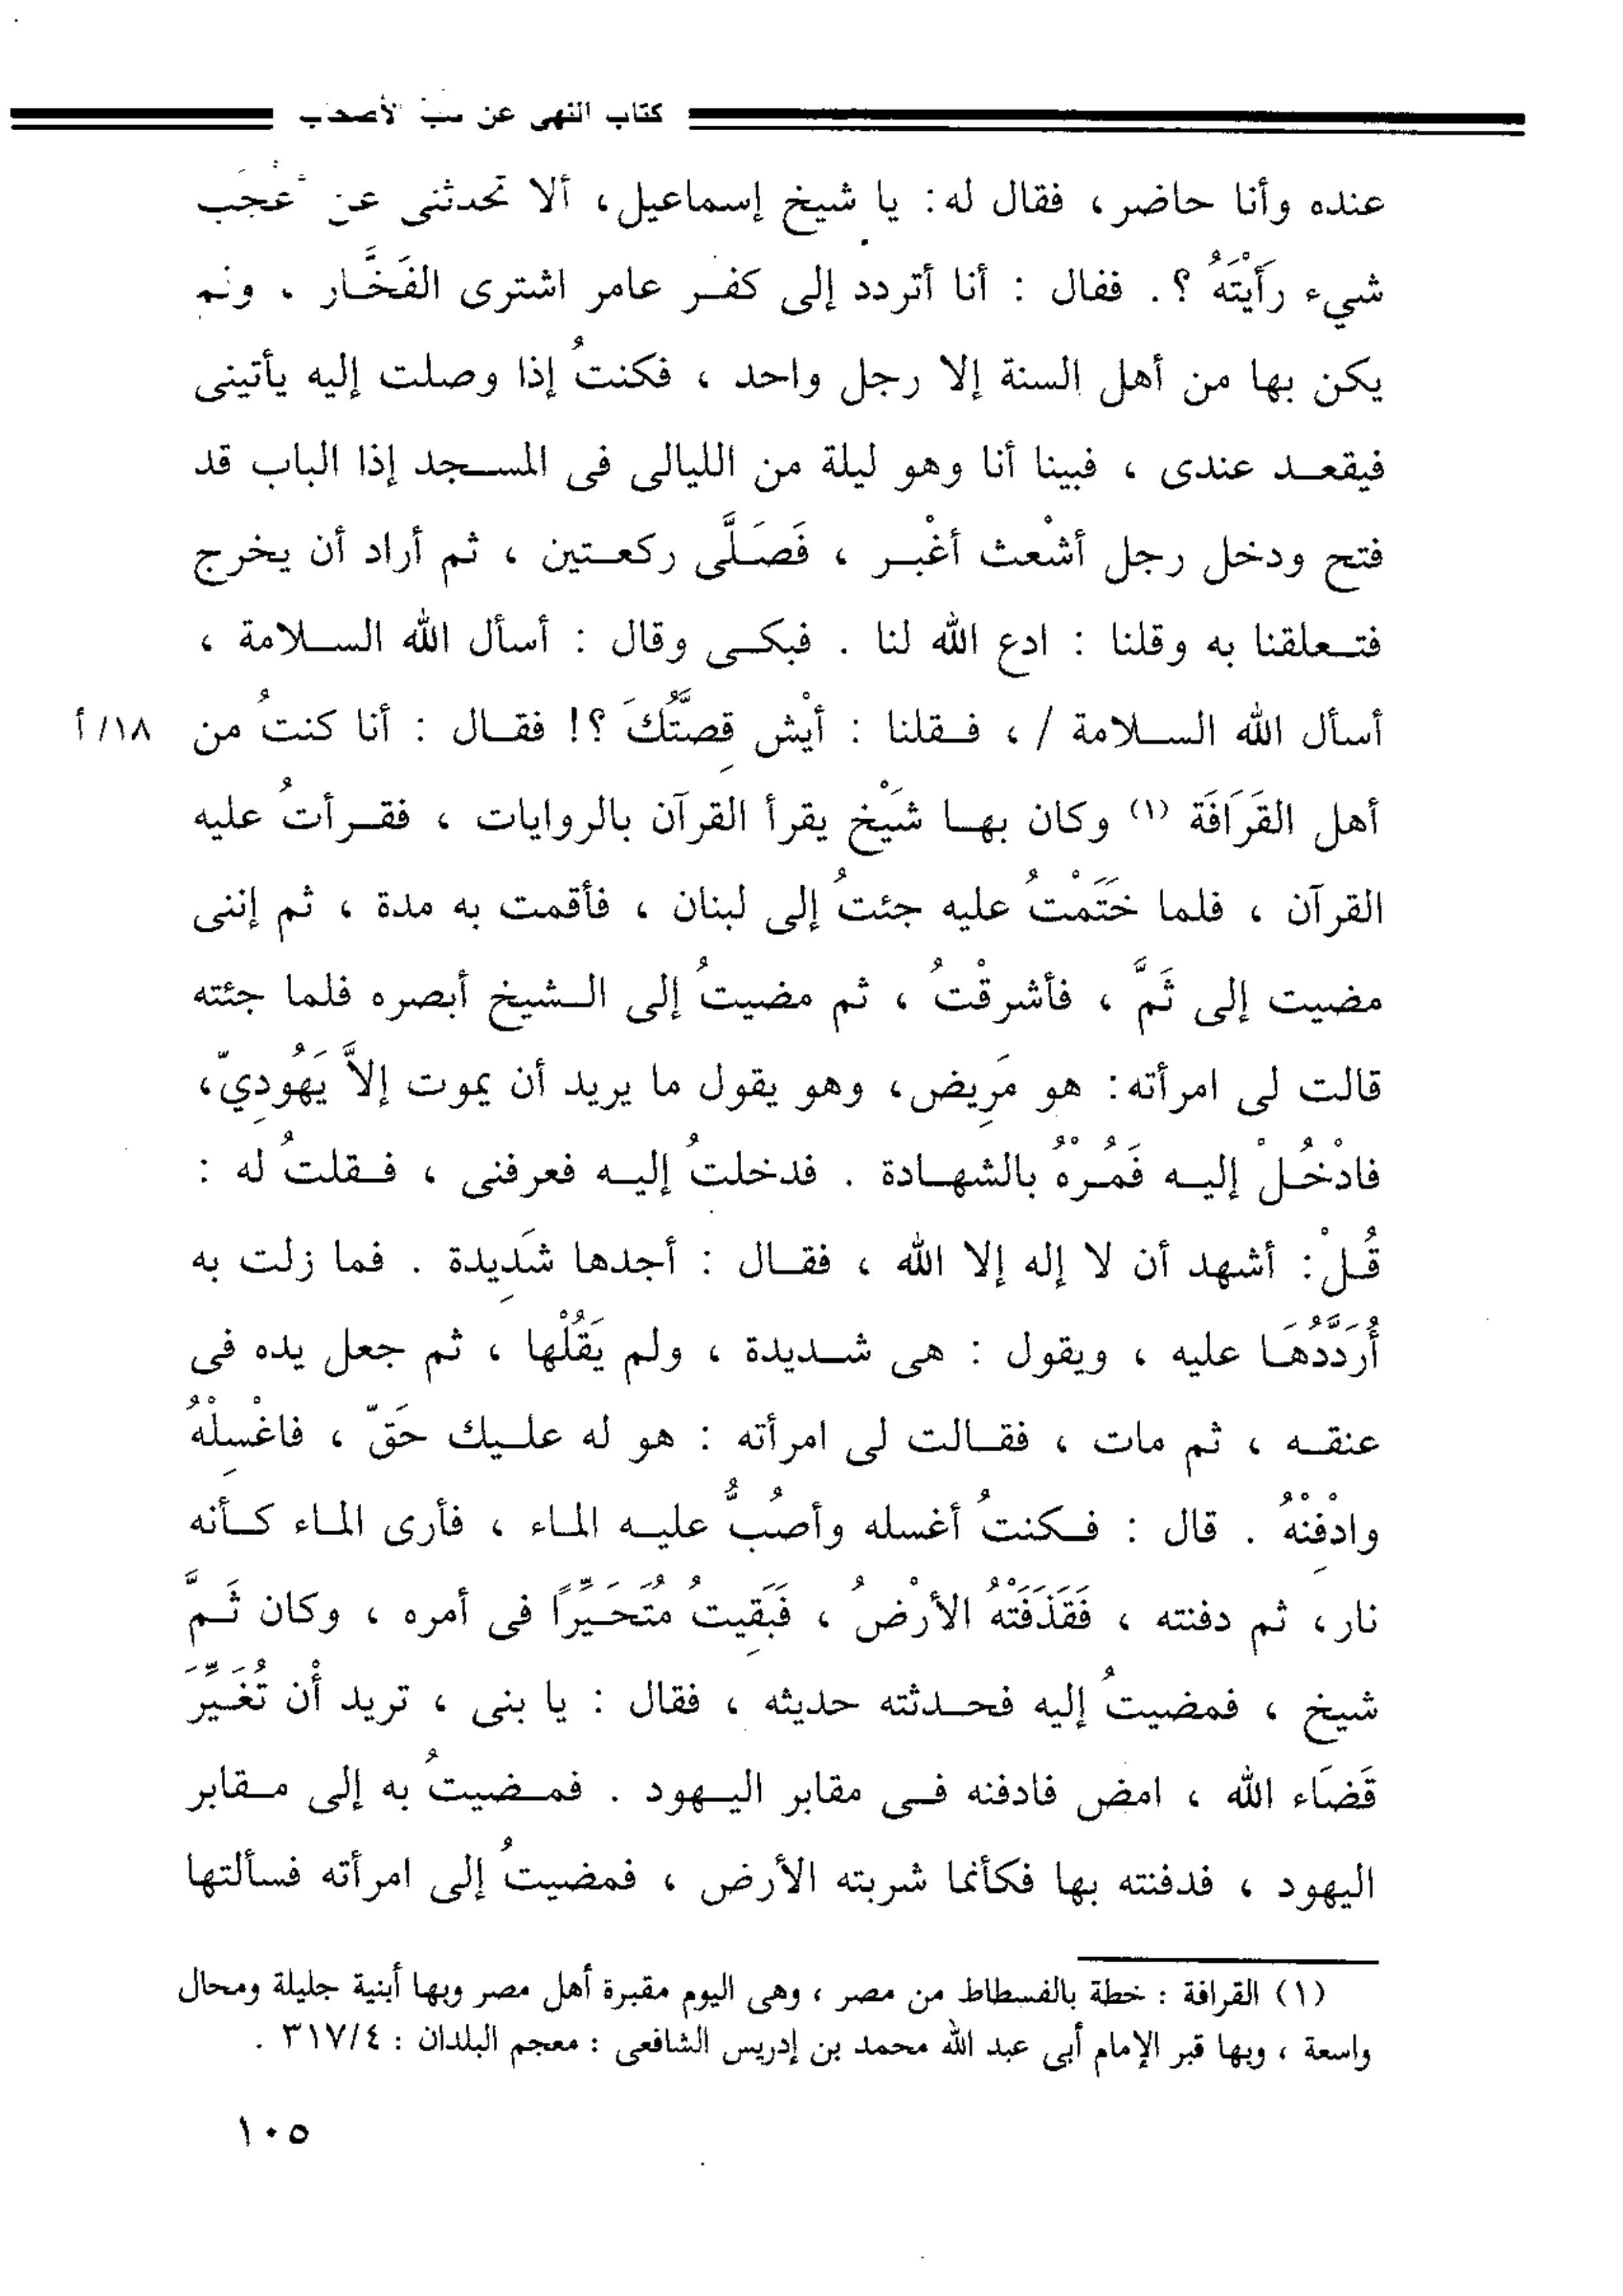 كتاب النهى عن سب الأصحاب
عنده وأنا حاضر، فقال له: يا شيخ إسماعيل، ألا تحدثنى عن أعْجَب
شيء رَأَيْتَهُ ؟. فقال : أنا أتردد إلى كفر عامر اشترى الفَخَّار ، ولم
يكن بها من أهل السنة إلا رجل واحد ، فكنتُ إذا وصلت إليه يأتينى
فيقعد عندى ، فبينا أنا وهو ليلة من الليالى فى المسجد إذا الباب قد
فتح ودخل رجل أشْعث أغْبر ، فَصَلَّى ركعتين ، ثم أراد أن يخرج
فتعلقنا به وقلنا : ادع الله لنا . فبكى وقال : أسأل الله السلامة ،
أسأل الله السلامة / ، فقلنا : أيْش قِصَّتُكَ ؟! فقال : أنا كنتُ من ١٨/ أ
أهل القَرَافَة (١) وكان بها شَيْخ يقرأ القرآن بالروايات ، فقرأتُ عليه
القرآن ، فلما خَتَمْتُ عليه جئتُ إلى لبنان ، فأقمت به مدة ، ثم إننى
مضيت إلى ثَمَّ ، فأشرقْتُ ، ثم مضيتُ إلى الشيخ أبصره فلما جئته
قالت لى امرأته: هو مَرِيض، وهو يقول ما يريد أن يموت إلاَّ يَهُودِيّ،
فادْخُلْ إليه فَمُرْهُ بالشهادة . فدخلتُ إليه فعرفنى ، فقلتُ له :
قُلْ: أشهد أن لا إله إلا الله ، فقال : أجدها شَدِيدة . فما زلت به
أُرَدَّدُهَا عليه ، ويقول : هى شديدة ، ولم يَقُلْها ، ثم جعل يده فى
عنقه ، ثم مات ، فقالت لى امرأته : هو له عليك حَقّ ، فاغْسِلْهُ
وادْفِنْهُ . قال : فكنتُ أغسله وأصُبُّ عليه الماء ، فأرى الماء كأنه
نار، ثم دفنته ، فَقَذَفَتْهُ الأرْضُ ، فَبَقِيتُ مُتَحَيِّرًا فى أمره ، وكان ثَمَّ
شيخ ، فمضيتُ إليه فحدثته حديثه ، فقال : يا بنى ، تريد أْن تُغَيِّرَ
قَضَاء الله ، امض فادفنه فى مقابر اليهود . فمضيتُ به إلى مقابر
اليهود ، فدفنته بها فكأنما شربته الأرض ، فمضيتُ إلى امرأته فسألتها
(١) القرافة : خطة بالفسطاط من مصر ، وهى اليوم مقبرة أهل مصر وبها أبنية جليلة ومحال
واسعة ، وبها قبر الإمام أبى عبد الله محمد بن إدريس الشافعى : معجم البلدان : ٣١٧/٤ .
١٠٥